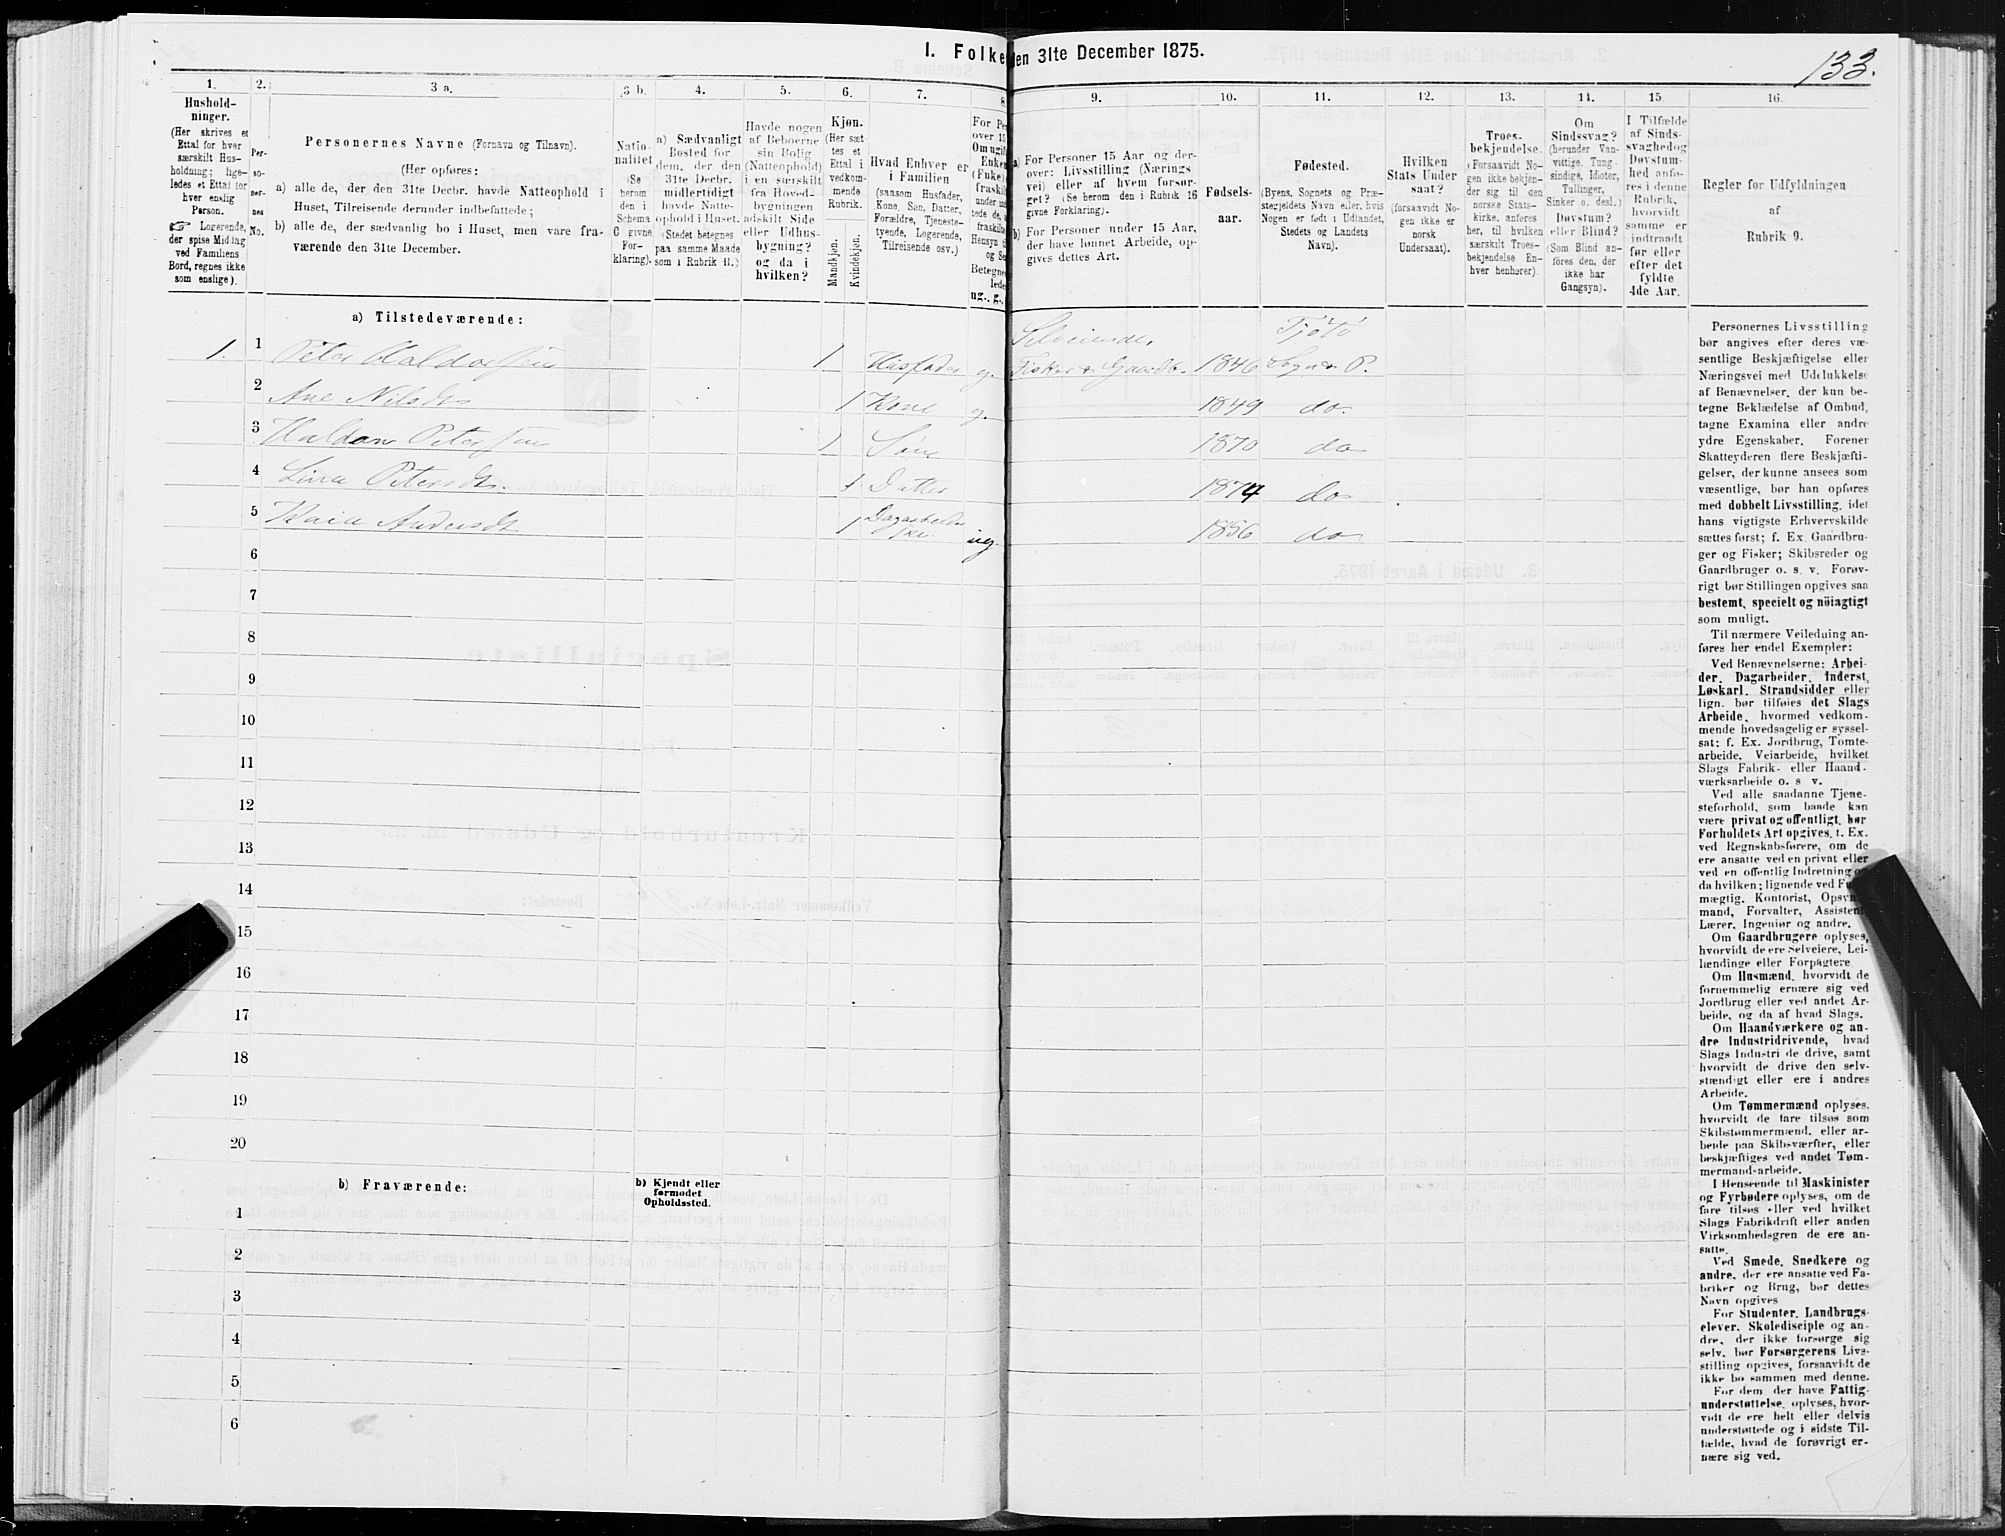 I. Folke
den 31te December 1875.
133.
1.
Hushold-
ninger.
(Her skrives et
Ettal for hver
særskilt Hus-
holdning; lige-
ledes et Ettal for
hver enslig
Person.
☞ Logerende,
der spise Middag
ved Familiens
Bord, regnes ikke
som enslige).
2.
Per-
so-
ner-
nes
No.
3 a.
Personernes Navne (Fornavn og Tilnavn).
(Her opføres:
a) alle de, der den 31te Decbr. havde Natteophold i
Huset, Tilreisende derunder indbefattede;
b) alle de, der sædvanlig bo i Huset, men vare fra-
værende den 31te December.
3 b.
Natio-
nalitet
(Se
herom
den i
Schema
C givne
For-
klaring).
4.
a) Sædvanligt
Bosted for
dem, der den
31te Decbr.
midlertidigt
havde Natte-
ophold i Huset.
(Stedet betegnes
paa samme Maade
som i Rubrik 11.)
5.
Havde nogen
af Beboerne
sin Bolig
(Natteophold)
i en særskilt
fra Hoved-
bygningen
adskilt Side
eller Udhus-
bygning?
og da i
hvilken?
6.
Kjøn.
(Her sæt-
tes et
Ettal i
vedkom-
mende
Rubrik.
Mandkjøn.
Kvindekjøn.
7.
Hvad Enhver er
i Familien
(saasom Husfader,
Kone, Søn, Datter,
Forældre, Tjeneste-
tyende, Logerende,
Tilreisende osv.)
8
For Pe
over 15
Om ugift
Enke
(Enke)
fraskilt
under
tede de,
fraskilte
Hensyn
og Se
Betegne
lede
ug., g.,
9.
a) For Personer 15 Aar og der-
over: Livsstilling (Nærings
vei) eller af hvem forsør-
get? (Se herom den i Rubrik 16
givne Forklaring).
b) For Personer under 15 Aar,
der have lønnet Arbeide, op-
gives dettes Art.
10.
Fødsels-
aar.
11.
Fødested.
(Byens, Sognets og Præ-
stegjeldets Navn eller, hvis
Nogen er født i Udlandet,
Stedets og Landets
Navn).
12.
Hvilken
Stats Under
saat?
(forsaavidt No-
gen ikke er
norsk
Undersaat).
13.
Troes-
bekjendelse.
(Forsaavidt No-
gen ikke bekjen-
der sig til den
norske Stats-
kirke, anføres
her, til hvilken
særskilt Troes-
bekjendelse En-
hver henhører).
14.
Om
Sindssvag?
(herunder Van-
vittige, Tung-
sindige, Idioter,
Tullinger,
Sinker o. desl.)
Døvstum?
eller Blind?
(Som Blind an-
føres den, der
ikke har
Gangsyn).
15.
I Tilfælde
af Sinds-
svaghed og
Døvstum-
hed anfø-
res i denne
Rubrik,
hvorvidt
samme er
indtraadt
før eller
efter det
fyldte
4de Aar.
16.
Regler for Udfyldningen
af
Rubrik 9.
a) Tilstedeværende:
Selveiende, Tjötö
1. 1 Peter Haldorsen 1 Husfader g. Fisker & Gaardb. 1846 Sogn & P.
2 Ane Nilsdt. 1 Kone g. 1849 do.
3 Haldan Petersen 1 Søn 1870 do
4 Lina Petersdt. 1 Datter 1874 do
5 Andersdt 1 ug. 1856 do
6
7
8
9
10
11
12
13
14
15
16
17
18
19
20
b) Fraværende:
b) Kjendt eller
formodet
Opholdssted.
1
2
3
4
5
6
Personernes Livsstilling
bør angives efter deres væ-
sentlige Beskjæftigelse eller
Næringsvei med Udelukkelse
af Benævnelser, der kun be-
tegne Beklædelse af Ombud,
tagne Examina eller andre
ydre Egenskaber. Forener
Skatteyderen flere Beskjæfti-
gelser, der kunne ansees som
væsentlige, bør han opføres
med dobbelt Livsstilling, idet
hans vigtigste Erhvervskilde
sættes først; f. Ex. Gaardbru-
ger og Fisker; Skibsreder og
Gaardbruger o. s. v. Forøv-
rigt bør Stillingen opgives saa
bestemt, specielt og nöiagtigt
som muligt.
Til nærmere Veiledning an-
føres her endel Exempler:
Ved Benævnelserne: Arbei-
der, Dagarbeider, Inderst,
Løskarl, Strandsidder eller
lign. bør tilføies det Slags
Arbeide, hvormed vedkom-
mende hovedsagelig er syssel-
sat; f. Ex. Jordbrug, Tomte-
arbeide, Veiarbeide, hvilket
Slags Fabrik- eller Haand-
værksarbeide o. s v.
Ved alle saadanne Tjene-
steforhold, som baade kan
være privat og offentligt, bør
Forholdets Art opgives, t. Ex.
ved Regnskabsførere, om de
ere ansatte ved en privat eller
ved en offentlig Indretning
da hvilken; lignende ved
mægtig, Kontorist, Opsyns-
mand, Forvalter, Assistent,
Lærer, Ingeniør og andre.
Om Gaardbrugere oplyses,
hvorvidt de ere Selveiere, Lei-
lændinge eller Forpagtere
Om Husmænd, hvorvidt de
fornemmelig ernære sig ved
Jordbrug eller ved andet Ar-
beide, og da af hvad Slags.
Om Haandværkere og an-
dre Industridrivende, hvad
Slags Industri de drive, samt
hvorvidt de drive den selv-
stændigt eller ere i andres
Arbeide.
Om Tømmermænd oplyses,
hvorvidt de fare tilsøs som
Skibstømmermænd, eller ar-
beide paa Skibsværfter, eller
beskjæftiges ved andet Tøm-
mermands-arbeide.
I Henseende til Maskinister
og Fyrbødere oplyses, om de
fare tilsøs eller ved hvilket
Slags Fabrikdrift eller anden
Virksomhedsgren de ere an-
satte.
Ved Smede, Snedkere og
andre, der ere ansatte ved Fa-
briker og Brug, bør dettes
Navn opgives
For Studenter, Landbrugs-
elever, Skoledisciple og an-
dre, der ikke forsørge sig
selv, bør Forsørgerens Livs-
stilling opgives, forsaavidt de
ikke bo sammen med denne.
For dem der have Fattig-
understøttelse, oplyses, hvor-
vidt de ere helt eller delvis
understøttede og i sidste Til-
fælde, hvad de forøvrigt er-
nære sig ved.